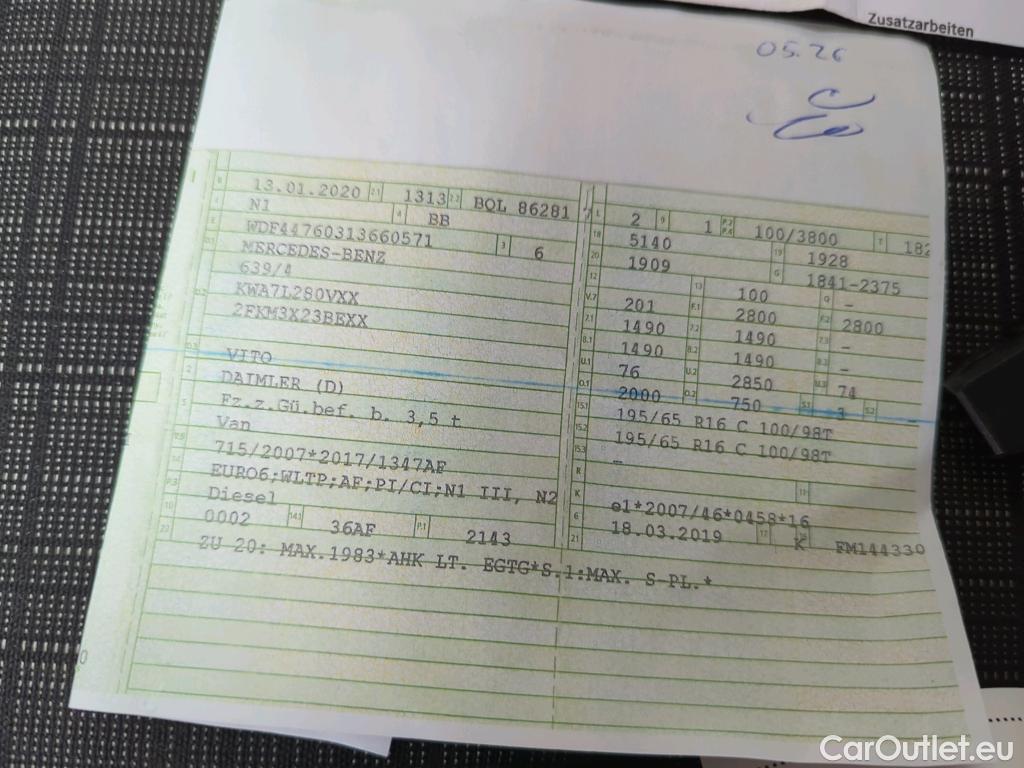 Zusatzarbeiten
05.26
B 13.01.2020 2.1 1313 2.2 BQL 86281 7
J N1 4 BB
E WDF44760313660571 3 6
D.1 MERCEDES-BENZ
639/4
D.2 KWA7L280VXX
2FKM3X23BEXX
D.3 VITO
2 DAIMLER (D)
5 Fz.z.Gü.bef. b. 3,5 t
Van
V.9 715/2007*2017/1347AF
14 EURO6;WLTP;AF;PI/CI;N1 III, N2
P.3 Diesel
10 0002 14.1 36AF P.1 2143
22 ZU 20: MAX.1983*AHK LT. EGTG*S.1:MAX. S-PL.*
L 2 9 1 P.2 P.4 100/3800 T 182
18 5140 19 1928
20 1909 G 1841-2375
12 13 100 Q -
V.7 201 F.1 2800 F.2 2800
7.1 1490 7.2 1490 7.3 -
8.1 1490 8.2 1490 8.3 -
U.1 76 U.2 2850 U.3 74
O.1 2000 O.2 750 S.1 3 S.2
15.1 195/65 R16 C 100/98T
15.2 195/65 R16 C 100/98T
15.3 -
R 11
K e1*2007/46*0458*16
6 18.03.2019 17 K 16 FM144330
21
0
CarOutlet.eu